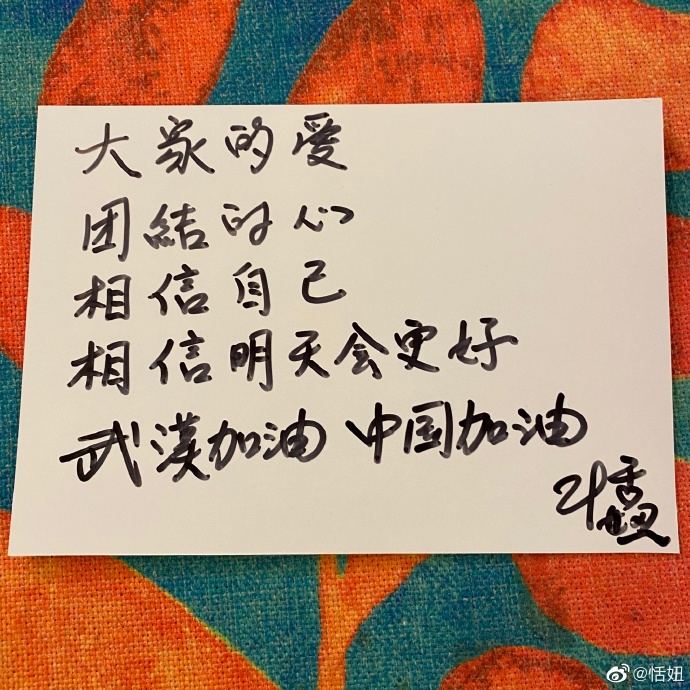 大家的爱
团結的心
相信自己
相信明天会更好
武漢加油 中国加油
恬妞
@恬妞